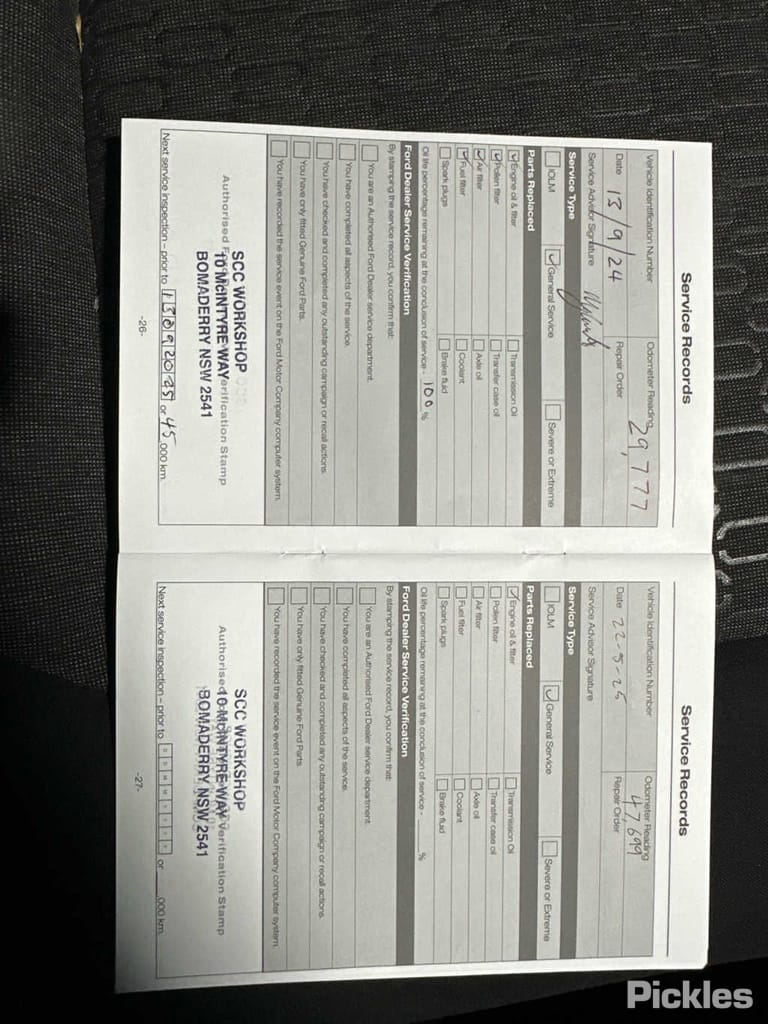 Service Records
Vehicle Identification Number
Odometer Reading 29,777
Date 13/9/24
Repair Order
Service Advisor Signature
Service Type
IOLM
General Service
Severe or Extreme
Parts Replaced
Engine oil & filter
Transmission Oil
Pollen filter
Transfer case oil
Air filter
Axle oil
Fuel filter
Coolant
Spark plugs
Brake fluid
Oil life percentage remaining at the conclusion of service - 100 %
Ford Dealer Service Verification
By stamping the service record, you confirm that:
You are an Authorised Ford Dealer service department.
You have completed all aspects of the service.
You have checked and completed any outstanding campaign or recall actions.
You have only fitted Genuine Ford Parts.
You have recorded the service event on the Ford Motor Company computer system.
SCC WORKSHOP
10 MCINTYRE WAY
BOMADERRY NSW 2541
Authorised Verification Stamp
Next service Inspection – prior to 13092025 or 45 ,000 km.
-26-
Service Records
Vehicle Identification Number
Odometer Reading 47,699
Date
Repair Order
Service Advisor Signature
Service Type
IOLM
General Service
Severe or Extreme
Parts Replaced
Engine oil & filter
Transmission Oil
Pollen filter
Transfer case oil
Air filter
Axle oil
Fuel filter
Coolant
Spark plugs
Brake fluid
Oil life percentage remaining at the conclusion of service - %
Ford Dealer Service Verification
By stamping the service record, you confirm that:
You are an Authorised Ford Dealer service department.
You have completed all aspects of the service.
You have checked and completed any outstanding campaign or recall actions.
You have only fitted Genuine Ford Parts
You have recorded the service event on the Ford Motor Company computer system.
SCC WORKSHOP
10 MCINTYRE WAY
BOMADERRY NSW 2541
Authorised Verification Stamp
Next service inspection – prior to or ,000 km.
-27-
Pickles